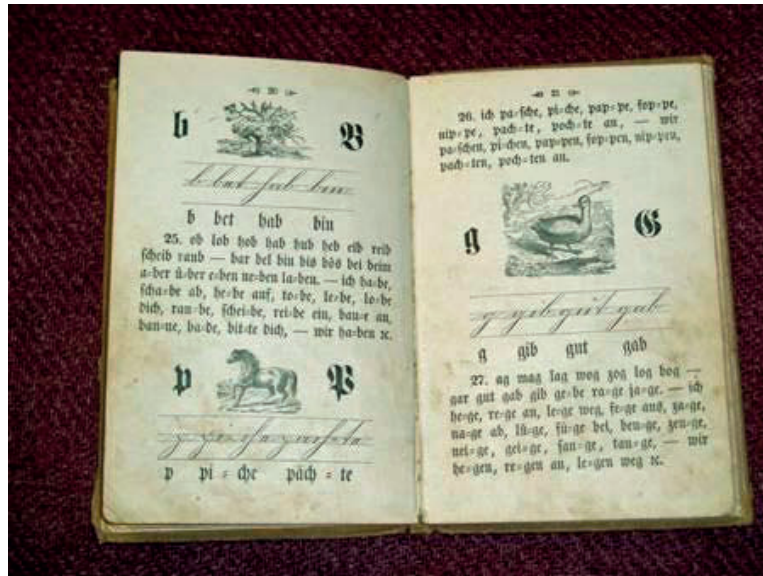 20
b B
b bet hab bin
b bet hab bin
25. ob lob hob hab hub heb eib reib
scheib raub — bar bel bin bis bös bei beim
a=ber ü=ber e=ben ne=ben la=ben. — ich ha=be,
scha=be ab, he=be auf, to=be, le=be, lo=be
dich, rau=be, schei=be, rei=be ein, bau=e an,
ban=ne, ba=de, bit=te dich, — wir ha=ben ꝛc.
p P
p pi=che päch=te
p pi=che päch=te
21
26. ich pa=sche, pi=che, pap=pe, fop=pe,
nip=pe, pach=te, poch=te an, — wir
pa=schen, pi=chen, pap=pen, fop=pen, nip=pen,
pach=ten, poch=ten an.
g G
g gib gut gab
g gib gut gab
27. ag mag lag wog zog log bog —
gar gut gab gib ge=be ra=ge ja=ge. — ich
he=ge, re=ge an, le=ge weg, fe=ge aus, za=ge,
na=ge ab, lü=ge, fü=ge bei, beu=ge, zeu=ge,
nei=ge, gei=ge, fan=ge, tau=ge, — wir
he=gen, re=gen an, le=gen weg ꝛc.